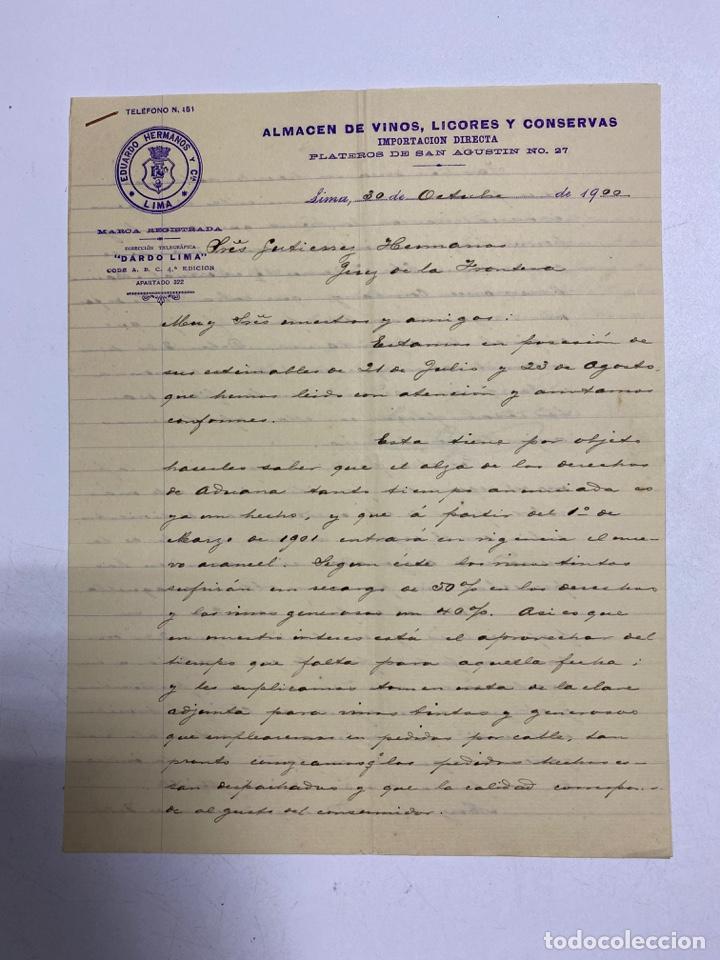 TELÉFONO N. 151
EDUARDO HERMANOS Y CIA
LIMA
MARCA REGISTRADA
DIRECCIÓN TELEGRÁFICA
"DARDO LIMA"
CODE A. B. C. 4.ª EDICION
APARTADO 322
ALMACEN DE VINOS, LICORES Y CONSERVAS
IMPORTACION DIRECTA
PLATEROS DE SAN AGUSTIN NO. 27
Lima, 30 de Octubre de 1900
Srēs Gutierrez Hermanos
Jerez de la Frontera
Muy Srēs nuestros y amigos:
Estamos en posesión de
sus estimables de 21 de Julio y 23 de Agosto,
que hemos leido con atención y anotamos
conformes.
Esta tiene por objeto
hacerles saber que el alza de los derechos
de Aduana tanto tiempo anunciada es
ya un hecho, y que á partir del 1º de
Marzo de 1901 entrará en vigencia el nue-
vo arancel. Segun éste los vinos tintos
sufrirán un recargo de 50% en los derechos
y los vinos generosos un 40%. Asi es que
en nuestro interes está el aprovechar del
tiempo que falta para aquella fecha;
y les suplicamos tomen nota de la clave
adjunta para vinos tintos y generosos
que emplearemos en pedidos por cable, tan
pronto conozcamos los pedidos hechos es-
tan despachados y que la calidad correspon-
de al gusto del consumidor.
todocoleccion
todocoleccion.net